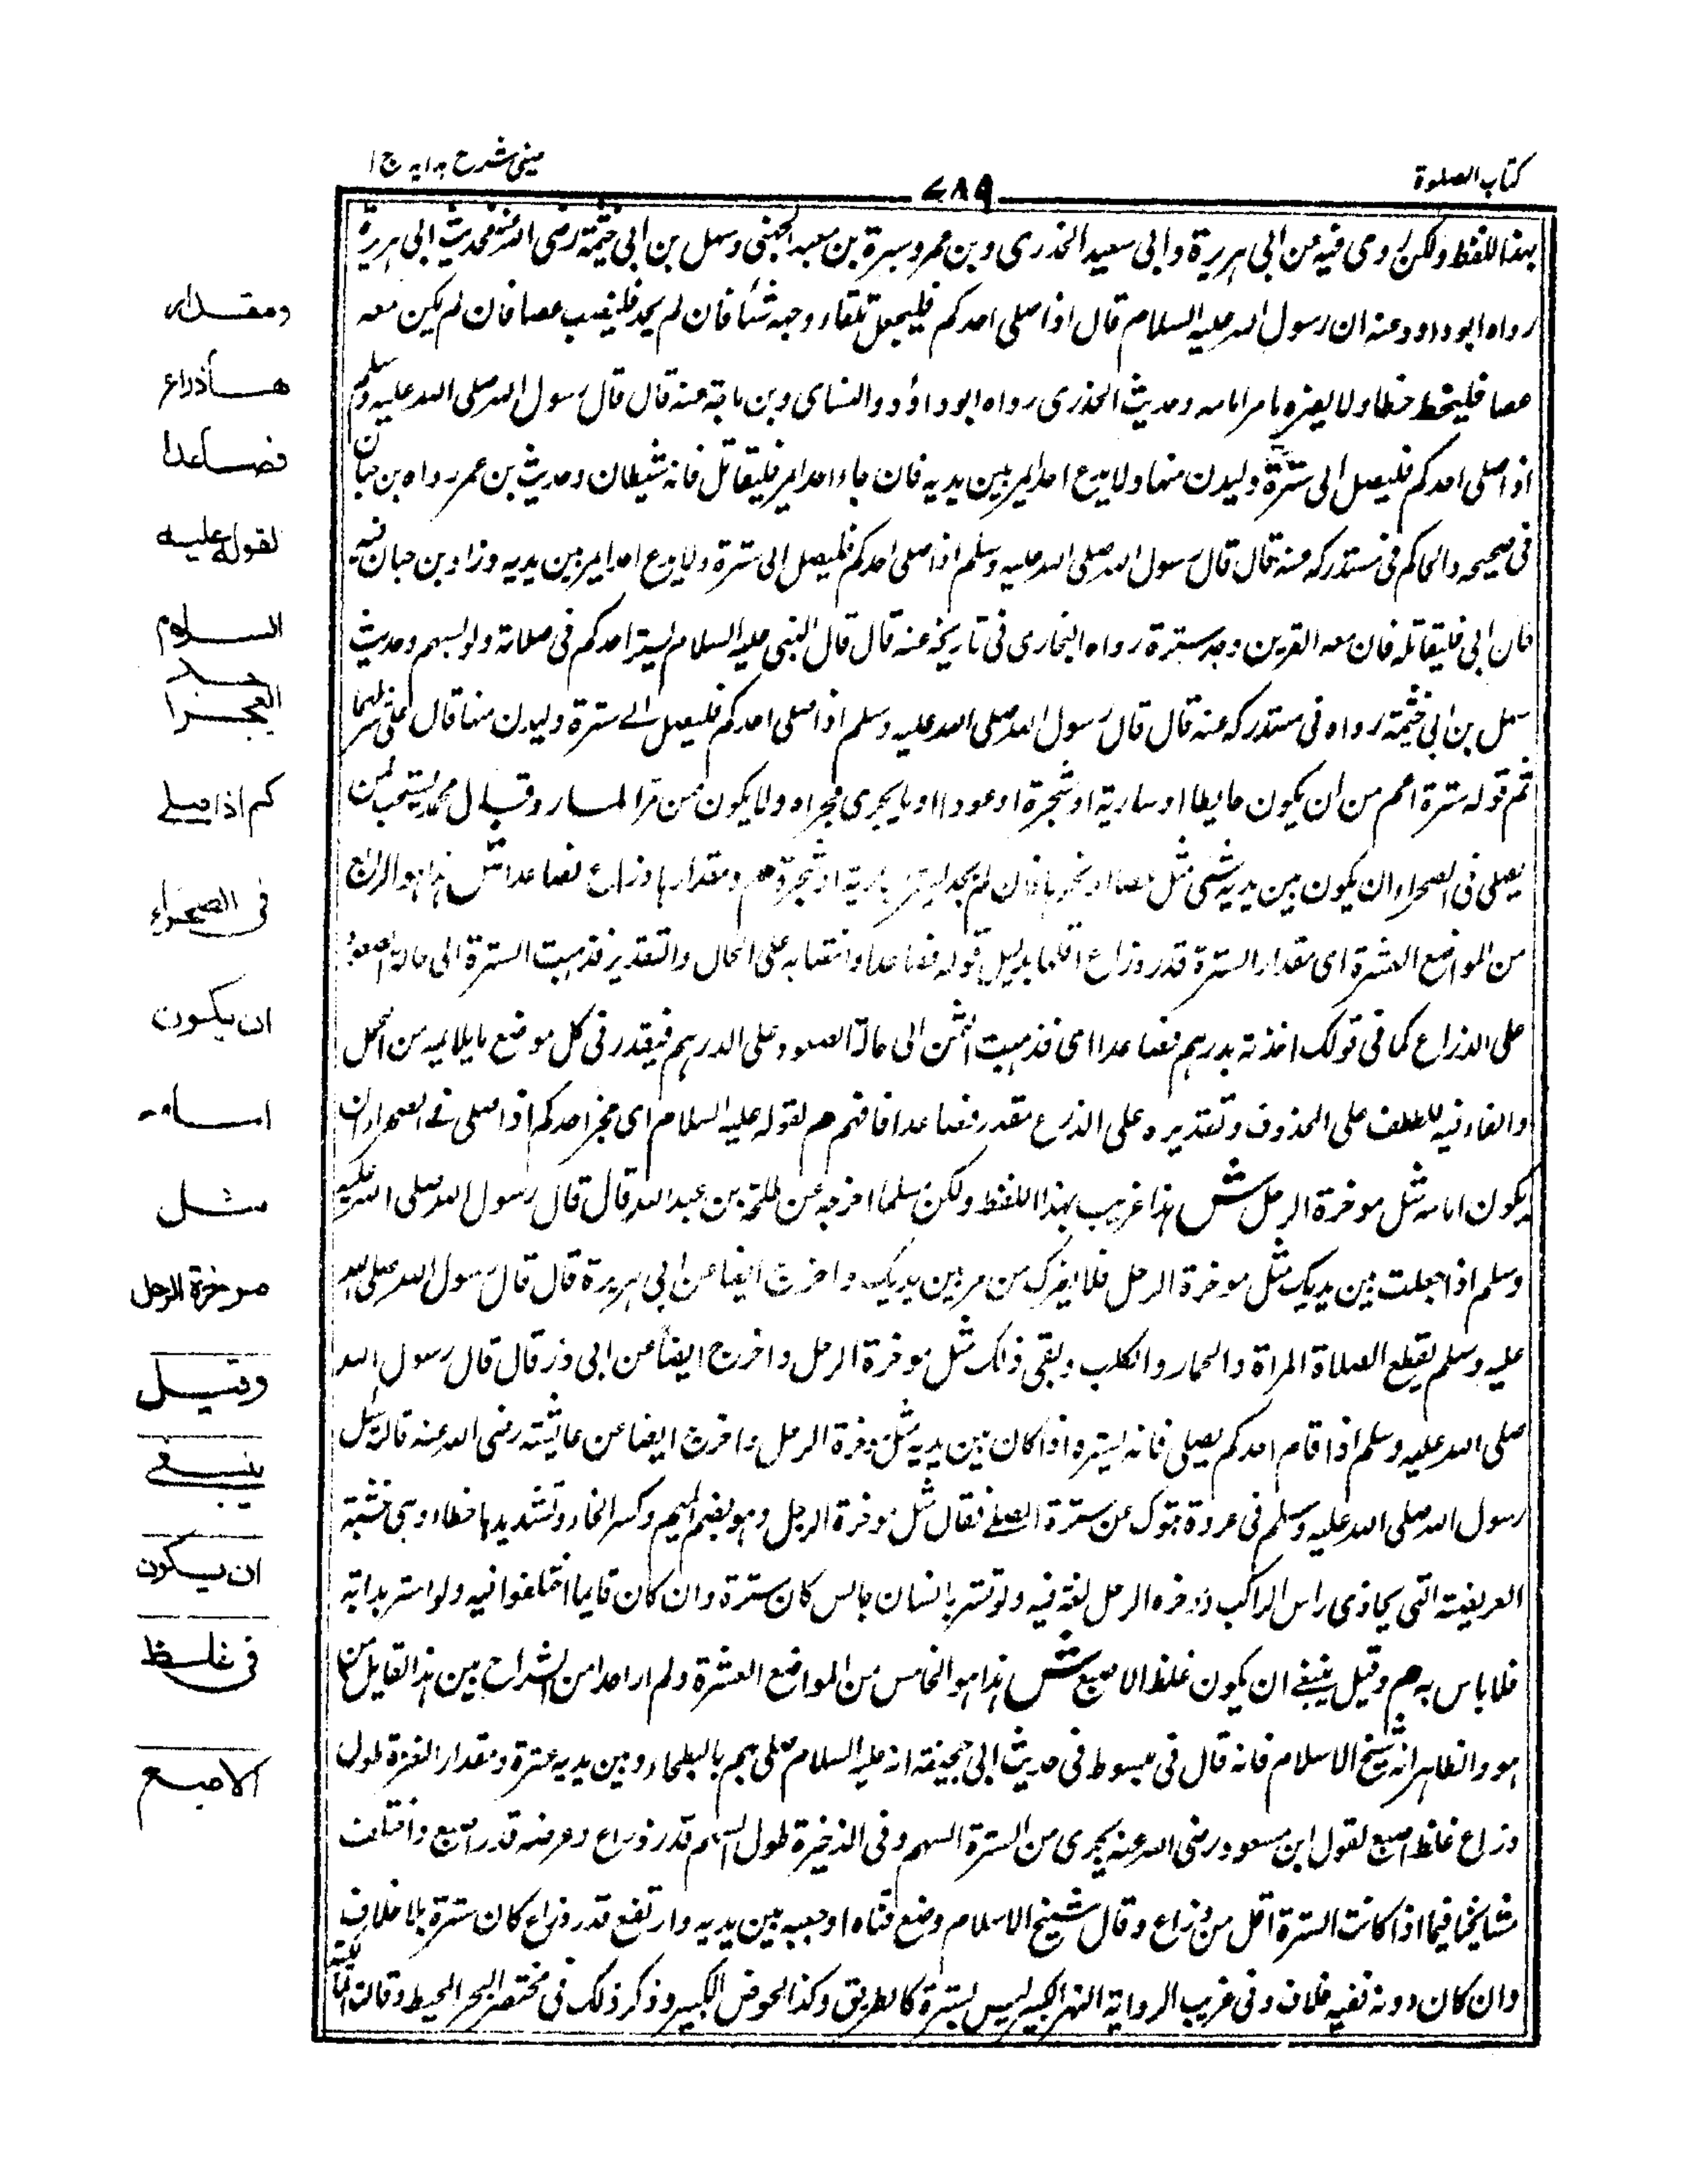 كتاب الصلوة
٧٨٩
عينى شرح هدايه ج ا
بهذا اللفظ ولكن روى فيه عن ابى هريرة وابى سعيد الخدرى وبن عمر وسبرة بن معبد الجهنى وسهل بن ابى خثمة رضى الله عنهم فحديث ابى هريرة
رواه ابو داود عنه ان رسول الله عليه السلام قال اذا صلى احدكم فليجعل تلقاء وجهه شئا فان لم يجد فلينصب عصا فان لم يكن معه
عصا فليخط خطا ولا يضره ما مر امامه وحديث الخذرى رواه ابو داؤد والنساى وبن ماجة عنه قال قال رسول الله صلى الله عليه وسلم
اذا صلى احدكم فليصل الى سترة وليدن منها ولا يدع احدا يمر بين يديه فان جاء احد يمر فليقاتل فانه شيطان وحديث بن عمر رواه بن حبان
فى صحيحه والحاكم فى مستدركه عنه قال قال رسول الله صلى الله عليه وسلم اذا صلى احدكم فليصل الى سترة ولا يدع احدا يمر بين يديه وزاد بن حبان فيه
فان ابى فليقاتله فان معه القرين وحديث سبرة رواه البخارى فى تاريخه عنه قال قال النبى عليه السلام ليستتر احدكم فى صلاته ولو بسهم وحديث
سهل بن ابى خثمة رواه فى مستدركه عنه قال قال رسول الله صلى الله عليه وسلم اذا صلى احدكم فليصل الے سترة وليدن منها قال على شرطهما
ثم قوله سترة اعم من ان يكون حايطا او سارية او شجرة او عودا او ما يجرى مجراه ولا يكون ممن مرا لمسار وقال محمد يستحب لمن
يصلى فى الصحراء ان يكون بين يديه شئى مثل عصا او نحوها فان لم يجد يستتر بسارية او شجرة هم ومقدارها ذراع فصاعدا ش هذا هو الرابع
من المواضع العشرة اى مقدار السترة قدر ذراع اقلها بدليل قوله فصاعدا وانتصابه على الحال والتقدير فذهبت السترة الى حالة الصعود
على الذراع كما فى قولك اخذته بدرهم فصاعدا اى فذهبت الثمن الى حالة الصعود على الدرهم فيقدر فى كل موضع ما يلايمه من العمل
والفاء فيه للعطف على المحذوف وتقديره على الذرع مقدر فصاعدا فافهم هم لقوله عليه السلام اى عجز احدكم اذا صلى فے الصحراء ان
يكون امامه مثل موخرة الرحل ش هذا غريب بهذا اللفظ ولكن مسلما اخرجه عن طلحة بن عبدالله قال قال رسول الله صلى الله عليه
وسلم اذا جعلت بين يديك مثل موخرة الرحل فلا يضرك من مر بين يديك واخرج ايضا عن ابى هريرة قال قال رسول الله صلى الله
عليه وسلم يقطع الصلاة المراة والحمار والكلب ويقى ذلك مثل موخرة الرحل واخرج ايضا عن ابى ذر قال قال رسول الله
صلى الله عليه وسلم اذا قام احدكم يصلى فانه يستره اذا كان بين يديه مثل موخرة الرحل واخرج ايضا عن عايشة رضى الله عنه قالت سئل
رسول الله صلى الله عليه وسلم فى غزوة تبوك عن سترة المصلے فقال مثل موخرة الرحل وهو بضم الميم وكسر الخاء وتشديدها خطاء وهى خشبة
العريضة التى يحاذى راس الراكب وموخره الرحل لغة فيه ولو تستر بانسان جالس كان سترة وان كان قايما اختلفوا فيه ولو استتر بدابة
فلا باس به هم وقيل ينبغے ان يكون غلظ الاصبع ش هذا هو الخامس من المواضع العشرة ولم ار احدا من الشراح بين هذا القايل من
هو والظاهر انه شيخ الاسلام فانه قال فى مبسوط فى حديث ابى جحيفة انه عليه السلام صلى بهم بالبطحاء وبين يديه عنزة ومقدار العنزة طول
ذراع غلظ اصبع لقول ابن مسعود رضى الله عنه يجرى من السترة السهم وفى الذخيرة طول السهم قدر ذراع وعرضه قدر اصبع واختلف
مشايخنا فيما اذا كانت السترة اقل من ذراع وقال شيخ الاسلام وضع قناه او جعبه بين يديه وارتفع قدر ذراع كان سترة بلا خلاف
وان كان دونه ففيه خلاف وفى غريب الرواية النهر الكبير ليس بسترة كالطريق وكذا الحوض الكبير وذكر ذلك فى مختصر البحر المحيط وقالت المالكية
ومقدار
ها ذراع
فصاعدا
لقوله عليه
السلام
ايعجز احد
كم اذا صلے
فى الصحراء
ان يكون
امامه
مثل
موخرة الرحل
وقيل
ينبغى
ان يكون
فى غلظ
الاصبع